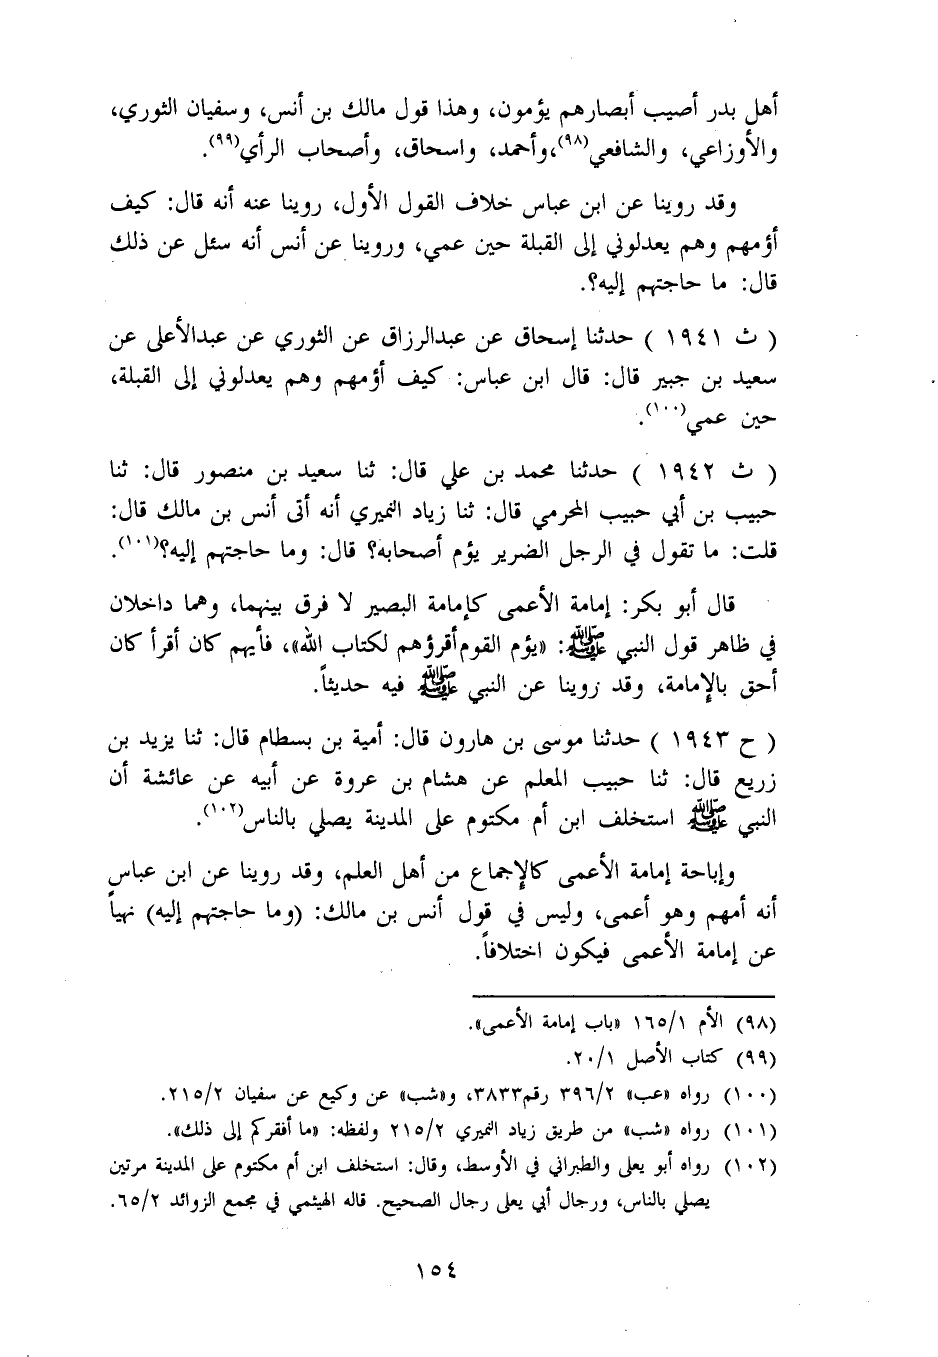 أهل بدر أصيب أبصارهم يؤمون، وهذا قول مالك بن أنس، وسفيان الثوري،
والأوزاعي، والشافعي(٩٨)،وأحمد، واسحاق، وأصحاب الرأي(٩٩).
وقد روينا عن ابن عباس خلاف القول الأول، روينا عنه أنه قال: كيف
أؤمهم وهم يعدلوني إلى القبلة حين عمي، وروينا عن أنس أنه سئل عن ذلك
قال: ما حاجتهم إليه؟.
( ث ١٩٤١ ) حدثنا إسحاق عن عبدالرزاق عن الثوري عن عبدالأعلى عن
سعيد بن جبير قال: قال ابن عباس: كيف أؤمهم وهم يعدلوني إلى القبلة،
حين عمي(١٠٠).
( ث ١٩٤٢ ) حدثنا محمد بن علي قال: ثنا سعيد بن منصور قال: ثنا
حبيب بن أبي حبيب المحرمي قال: ثنا زياد النميري أنه أتى أنس بن مالك قال:
قلت: ما تقول في الرجل الضرير يؤم أصحابه؟ قال: وما حاجتهم إليه؟(١٠١).
قال أبو بكر: إمامة الأعمى كإمامة البصير لا فرق بينهما، وهما داخلان
في ظاهر قول النبي ﷺ: «يؤم القوم أقرؤهم لكتاب الله»، فأيهم كان أقرأ كان
أحق بالإمامة، وقد روينا عن النبي ﷺ فيه حديثاً.
( ح ١٩٤٣ ) حدثنا موسى بن هارون قال: أمية بن بسطام قال: ثنا يزيد بن
زريع قال: ثنا حبيب المعلم عن هشام بن عروة عن أبيه عن عائشة أن
النبي ﷺ استخلف ابن أم مكتوم على المدينة يصلي بالناس(١٠٢).
وإباحة إمامة الأعمى كالإجماع من أهل العلم، وقد روينا عن ابن عباس
أنه أمهم وهو أعمى، وليس في قول أنس بن مالك: (وما حاجتهم إليه) نهياً
عن إمامة الأعمى فيكون اختلافاً.
(٩٨) الأم ١/١٦٥ «باب إمامة الأعمى».
(٩٩) كتاب الأصل ١/٢٠.
(١٠٠) رواه «عب» ٢/٣٩٦ رقم٣٨٣٣، و«شب» عن وكيع عن سفيان ٢/٢١٥.
(١٠١) رواه «شب» من طريق زياد النميري ٢/٢١٥ ولفظه: «ما أفقركم إلى ذلك».
(١٠٢) رواه أبو يعلى والطبراني في الأوسط، وقال: استخلف ابن أم مكتوم على المدينة مرتين
يصلي بالناس، ورجال أبي يعلى رجال الصحيح. قاله الهيثمي في مجمع الزوائد ٢/٦٥.
١٥٤